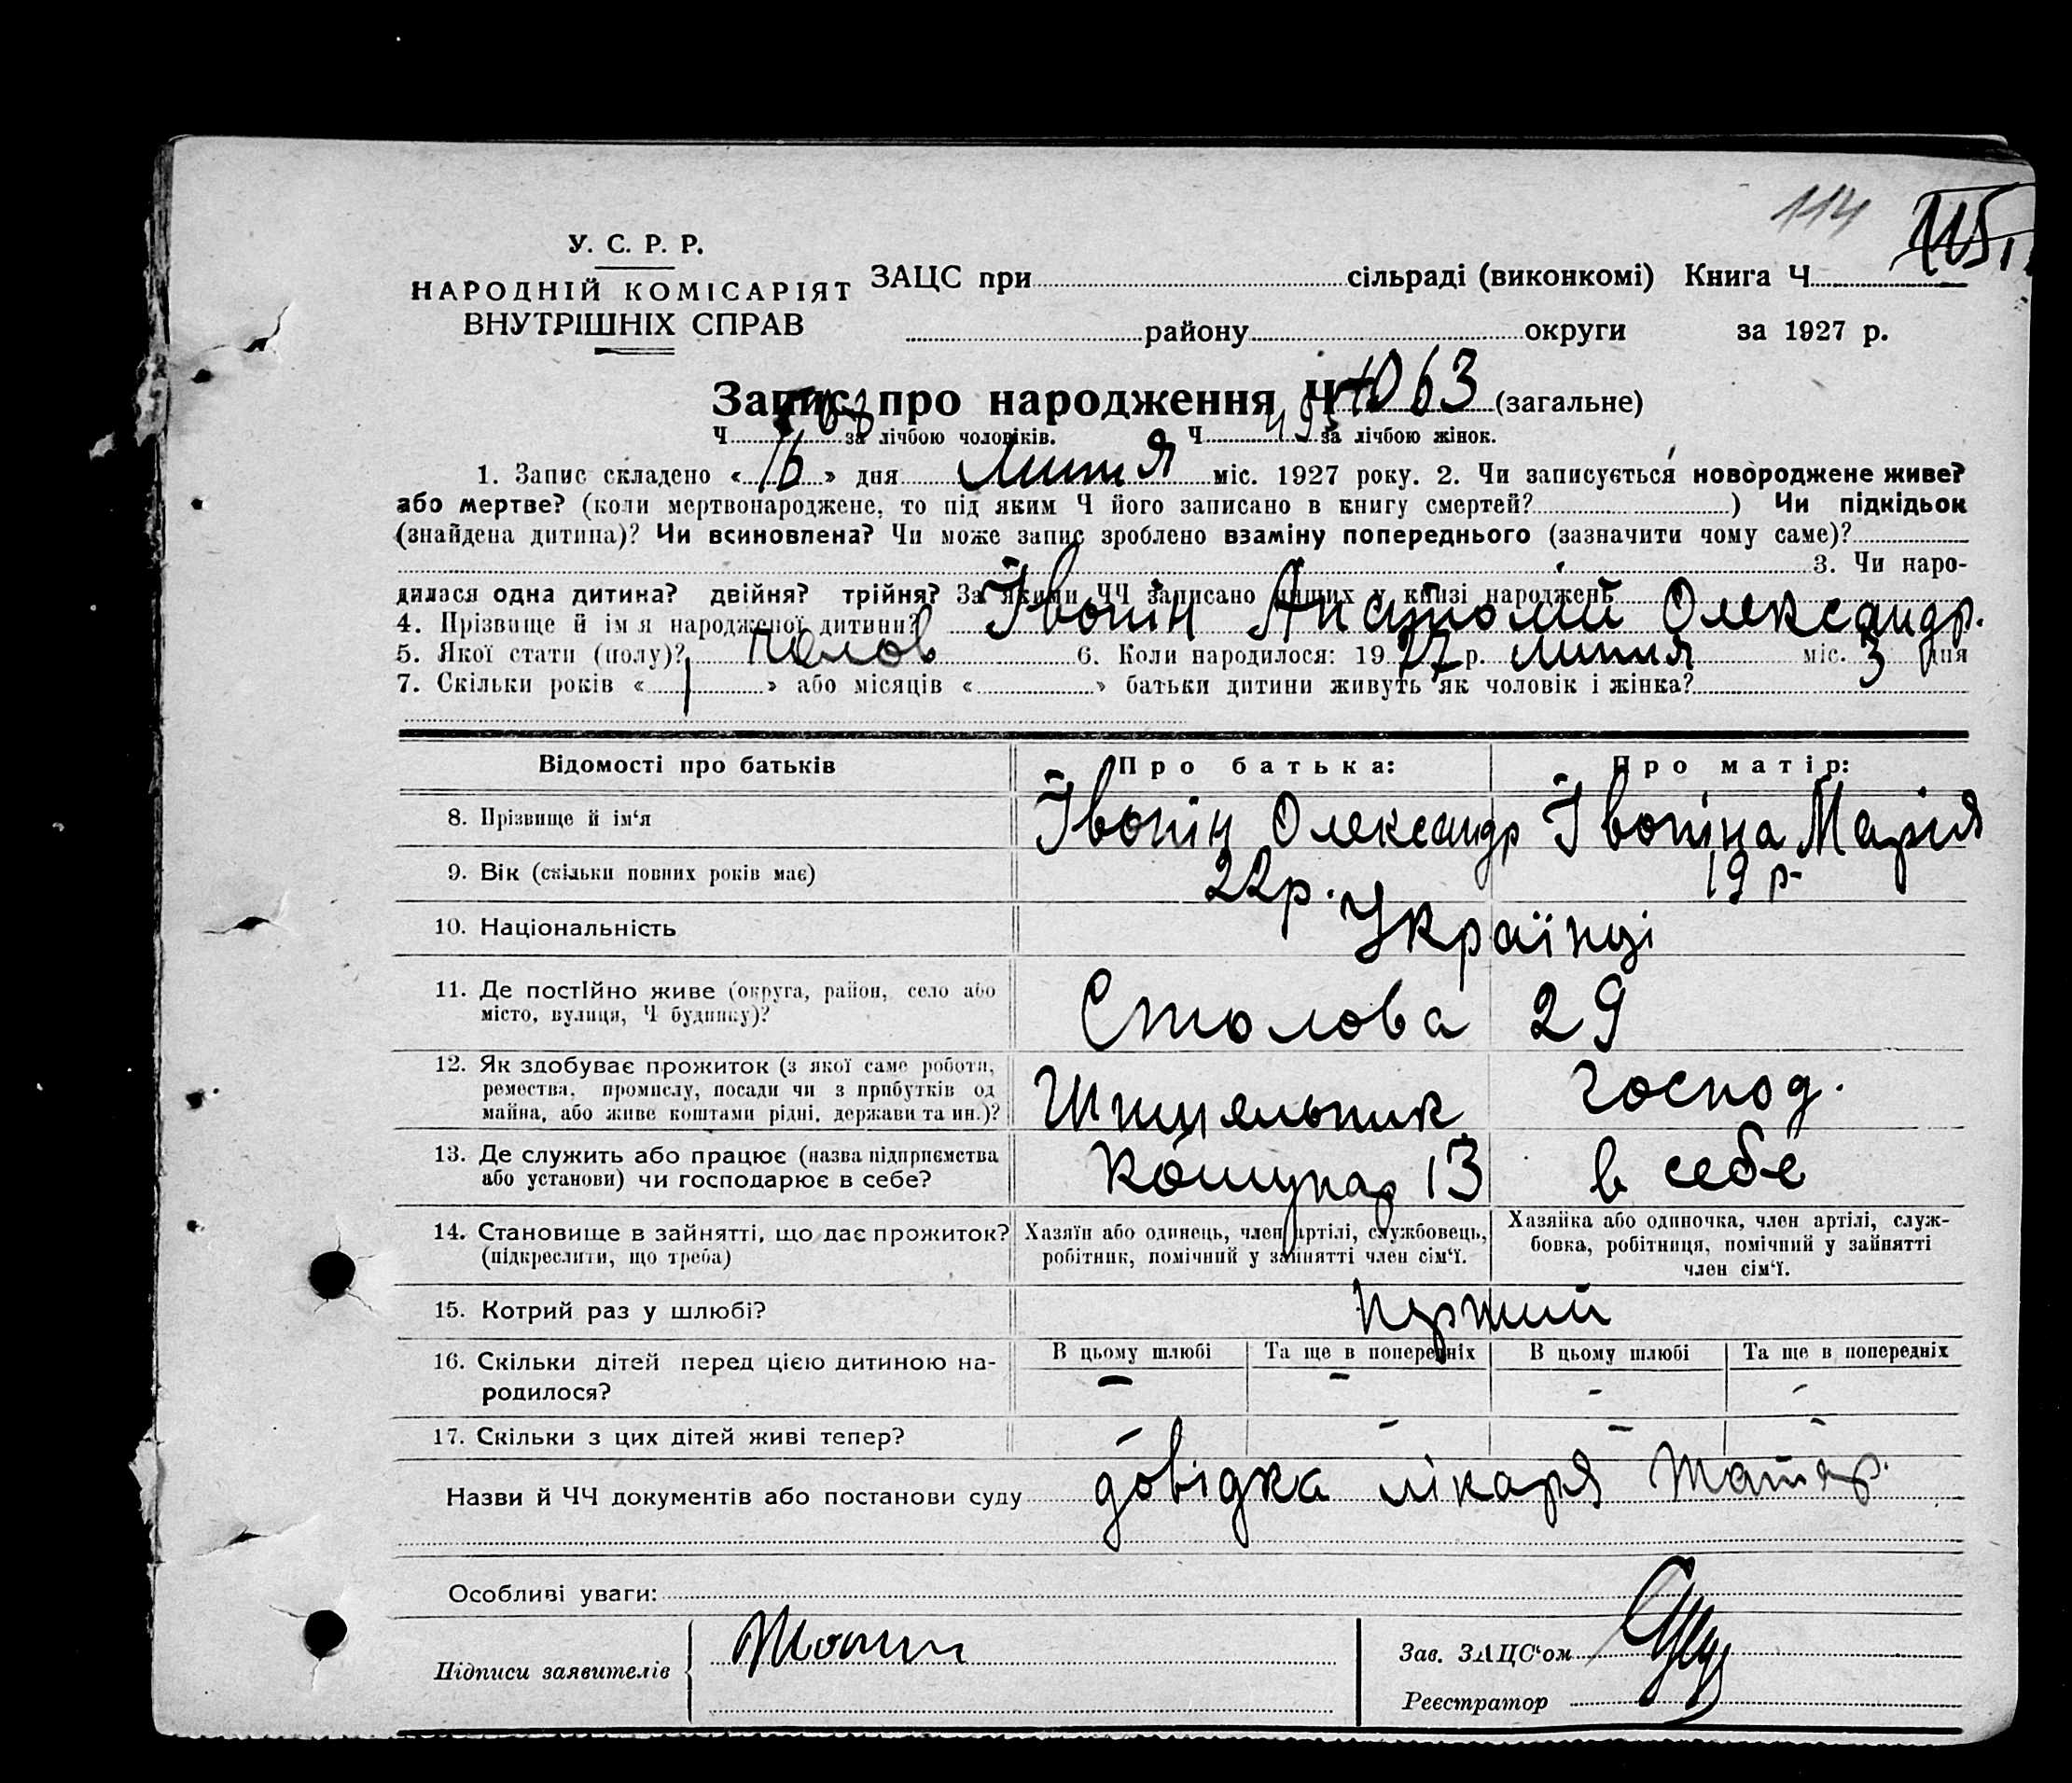 114
115
У. С. Р. Р.
НАРОДНІЙ КОМІСАРІЯТ
ВНУТРІШНІХ СПРАВ
ЗАЦС при сільраді (виконкомі) Книга Ч
району округи за 1927 р.
Запис про народження Ч 1063 (загальне)
Ч за лічбою чоловіків. Ч за лічбою жінок.
1. Запис складено « 16 » дня Липня міс. 1927 року. 2. Чи записується новороджене живе?
або мертве? (коли мертвонароджене, то під яким Ч його записано в книгу смертей? ) Чи підкідьок
(знайдена дитина)? Чи всиновлена? Чи може запис зроблено взаміну попереднього (зазначити чому саме)?
3. Чи наро-
дилася одна дитина? двійня? трійня? За якими ЧЧ записано инших у книзі народжень
4. Прізвище й ім я народженої дитини? Івонін Анатолій Олександр.
5. Якої стати (полу)? чолов 6. Коли народилося: 19 27 р. липня міс. 3 дня
7. Скільки років « 1 » або місяців « » батьки дитини живуть як чоловік і жінка?
Відомості про батьків Про батька: Про матір:
8. Прізвище й ім‘я Івонін Олександр Івоніна Марія
9. Вік (скільки повних років має) 22 р. 19 р.
10. Національність Українці
11. Де постійно живе (округа, район, село або
місто, вулиця, Ч будинку)? Столова 29
12. Як здобуває прожиток (з якої саме роботи,
ремества, промислу, посади чи з прибутків од
майна, або живе коштами рідні, держави та ин.)? господ.
13. Де служить або працює (назва підприємства
або установи) чи господарює в себе? Комунар 13 в себе
14. Становище в зайнятті, що дає прожиток?
(підкреслити, що треба)
Хазяїн або одинець, член артілі, службовець,
робітник, помічний у зайнятті член сім‘ї.
Хазяйка або одиночка, член артілі, служ-
бовка, робітниця, помічний у зайнятті
член сім‘ї.
15. Котрий раз у шлюбі? перший
16. Скільки дітей перед цією дитиною на-
родилося?
В цьому шлюбі Та ще в попередніх В цьому шлюбі Та ще в попередніх
– – – –
17. Скільки з цих дітей живі тепер? – – – –
Назви й ЧЧ документів або постанови суду довідка лікаря
Особливі уваги:
Підписи заявителів
Зав. ЗАЦС‘ом
Реєстратор